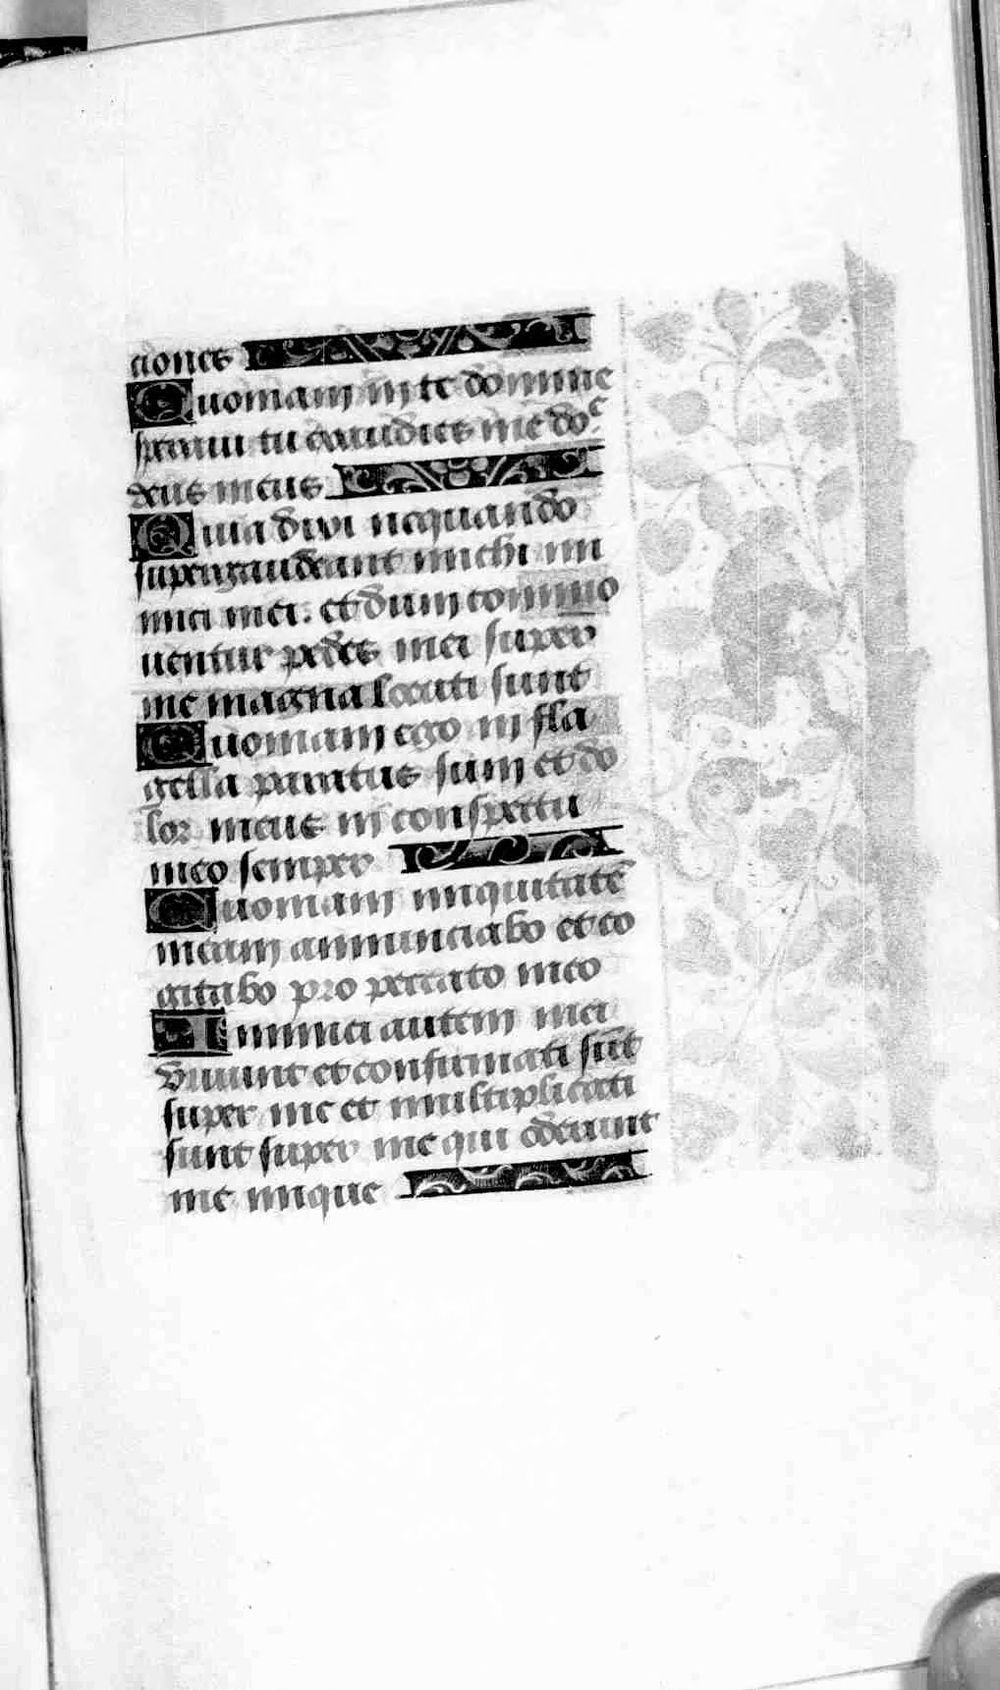 ciones
Quoniam in te domine
speraui tu exaudies me doe
deus meus
Quia dixi nequando
supergaudeant michi ini
mici mei. et dum commo
uentur pedes mei super
me magna locuti sunt
Quoniam ego in fla
gella paratus sum et do
lor meus in conspectu
meo semper
Quoniam iniquitatē
meam annunciabo et co
gitabo pro peccato meo
Inimici autem mei
viuunt et confirmati sūt
super me et multiplicati
sunt super me qui oderunt
me inique